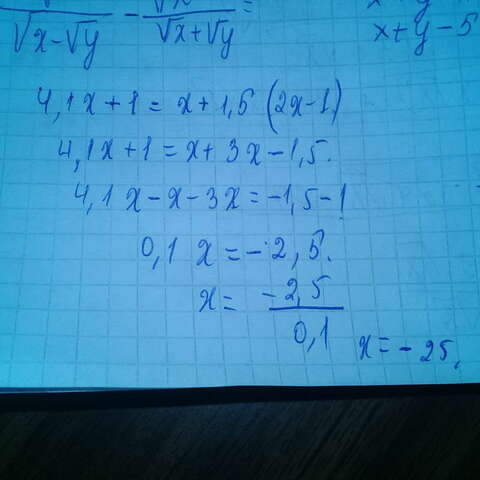 √x-√y - √x+√y =
x+y-5
4,1x+1=x+1,5(2x-1)
4,1x+1=x+3x-1,5.
4,1x-x-3x=-1,5-1
0,1 x=-2,5.
x= -2,5
0,1
x=-25.